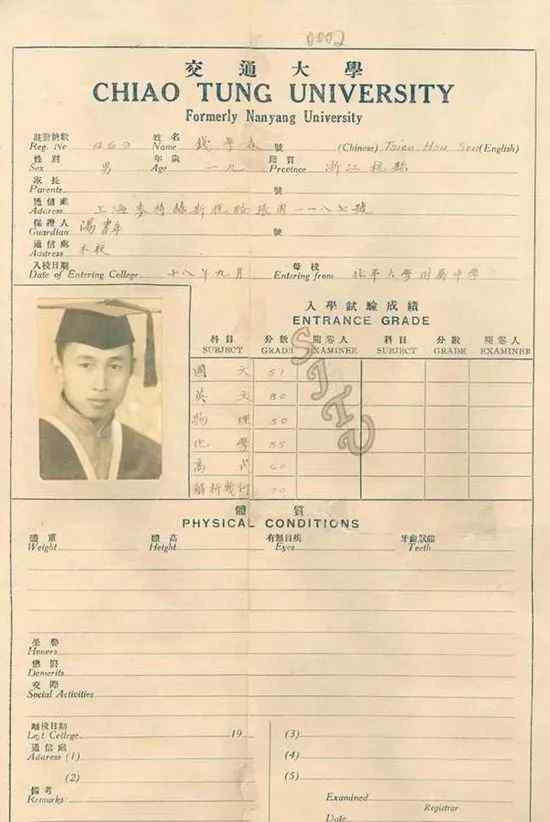 0002
交通大學
CHIAO TUNG UNIVERSITY
Formerly Nanyang University
註冊號數 姓名 號
Reg. No 469 Name 錢學森 (Chinese) Tsien, Hsu Sen (English)
性別 年歲 籍貫
Sex 男 Age 一九 Province 浙江杭縣
家長 號
Parents
通信處
Address 上海麥特赫斯脫路張園一一八七號
保證人 號
Guardian 湯書年
通信處
Address 本校
入校日期 母校
Date of Entering College 十八年九月 Entering from 北平大學附屬中學
入學試驗成績
ENTRANCE GRADE
科目 分數 閱卷人 科目 分數 閱卷人
SUBJECT GRADE EXAMINER SUBJECT GRADE EXAMINER
國文 51
英文 80
物理 50
化學 85
高代 60
解析幾何 70
SJTU
體質
PHYSICAL CONDITIONS
體重 體高 有無目疾 牙齒缺齲
Weight Height Eyes Teeth
榮譽
Honors
懲罰
Demerits
交際
Social Activities
離校日期
Left College 19 (3)
通信處
Address (1) (4)
(2) (5)
備考
Remarks Examined
Registrar
Date